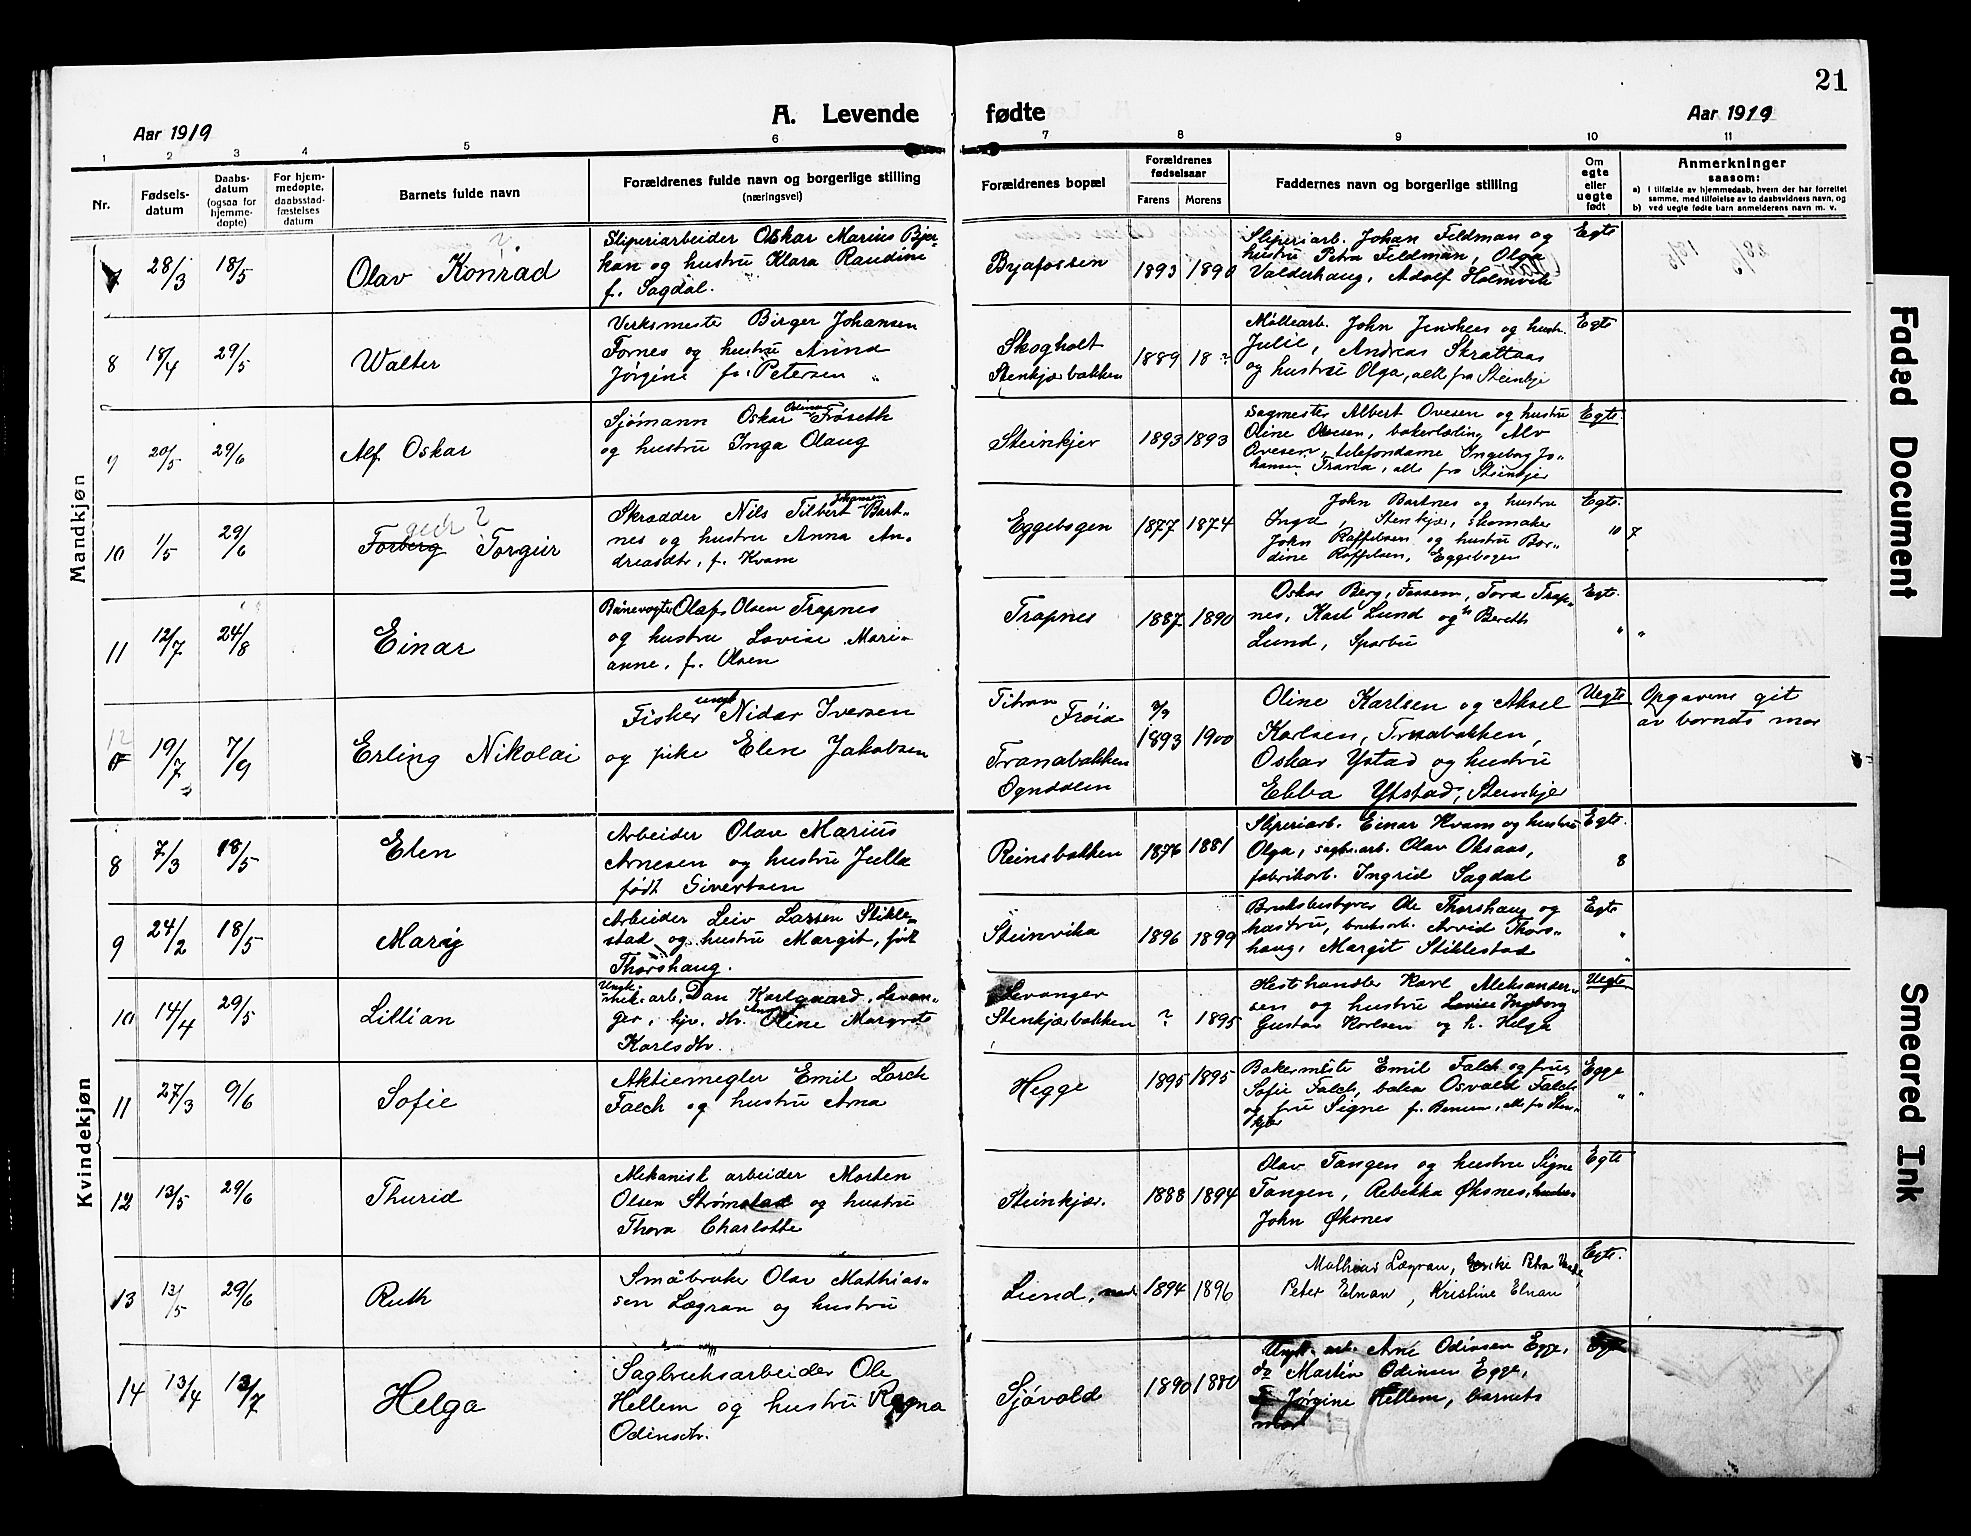 21
A. Levende fødte
Aar 1919
Aar 1919
1 2 3 4 5 6 7 8 9 10 11
Nr.
Fødsels-
datum
Daabs-
datum
(ogsaa for
hjemme-
døpte)
For hjem-
medøpte,
daabsstad-
fæstelses
datum
Barnets fulde navn
Forældrenes fulde navn og borgerlige stilling
(næringsvei)
Forældrenes bopæl
Forældrenes
fødselsaar
Farens Morens
Faddernes navn og borgerlige stilling
Om
egte
eller
uegte
født
Anmerkninger
saasom:
a) i tilfælde av hjemmedaab, hvem der har forrettet
samme, med tilføielse av to daabsvidners navn, og
b) ved uegte fødte barn anmelderens navn m. v.
Mandkjøn
7 28/3 18/5 Olav Konrad
Sliperiarbeider Oskar Marius Bjer-
kan og hustru Klara Raudine
f. Sagdal.
Byafossen 1893 1890
Sliperiarb. Johan Feldman og
hustru Petra Feldman, Olga
Valderhaug, Adolf Holmvik
Egte
8 18/4 29/5 Walter
Verksmester Birger Johansen
Fornes og hustru Anna
Jørgine f. Petersen
Skogholt
Stenkjærbakken
1889 18 ?
Møllearb. John Jenshus og hustr.
Julie, Andreas Skrattaas
og hustru Olga, alle fra Steinkje
Egte
9 20/5 29/6 Alf Oskar
Sjømann Oskar Odinn Frøseth
og hustru Inga Olaug
Steinkjer 1893 1893
Sagmester Albert Ovesen og hustru
Oline Ovesen, bakerlærling Alv
Ovesen, telefondame Ingeborg Jo-
hansen Trana, alle fra Steinkjer
Egte
10 1/5 29/6 Torberg Torgeir
geir ?
Skrædder Nils Tilbert Johansen Bart-
nes og hustru Anna An-
dreasdtr, f. Kvam
Eggebogen 1877 1874
John Bartnes og hustru
Inga, Stenkjær, skomaker
John Raffelsen og hustru Bor-
dine Raffelsen, Eggebogen
Egte.
" 7
11 12/7 24/8 Einar
Banevogter Olaf Olsen Trapnes
og hustru Lovise Mari-
anne, f. Olsen
Trapnes 1887 1890
Oskar Berg, Fossem, Tora Trap-
nes, Karl Lund og h Bereth
Lund, Sparbu
Egte.
" "
12 19/7 7/9 Erling Nikolai
Fisker ungk. Nidar Iversen
og pike Elen Jakobsen
Titran
Frøia
Tranabakken
Ogndalen
7/9
1893 1900
Oline Karlsen og Aksel
Karlsen, Tranabakken,
Oskar Ystad og hustru
Ebba Ystad, Steinkjer
Uegte
Opgavene git
av barnets mor
Kvindekjøn
8 7/3 18/5 Elen
Arbeider Olav Marius
Arnesen og hustru Julla
født Sivertsen
Reinsbakken 1876 1881
Sliperiarb. Einar Kvam og hustru
Olga, sagbr.arb. Olav Oksaas,
fabrikarb. Ingrid Sagdal
Egte.
8
9 24/2 18/5 Marij
Arbeider Leiv Larsen Stikle-
stad og hustru Margit, født
Thorshaug.
Steinvika 1896 1899
Bruksbestyrer Ole Thorshaug og
hustru, bruksarb. Arvid Thors-
haug, Margit Stiklestad
Egte
"
10 14/4 29/5 Lillian
Ungk.
mek. arb. Dan Karlgaard, Levan-
ger, hjv. dtr. Anna Oline Margrete
Karlsdtr.
Levanger
Stenkjærbakken
? 1895
Hesthandler Karl Aleksander-
sen og hustru Lovise Ingeborg
Gustav Karlsen og h. Helga
Uegte
11 27/3 9/6 Sofie
Aktiemegler Emil Lorck
Falch og hustru Arna
Hegge 1895 1895
Bakermester Emil Falch og frue
Sofie Falch, baker Osvald Falch
og fru Signe f. Benum, alle fra Sten-
kjær
Egge
" "
12 13/5 29/6 Thurid
Mekanisk arbeider Morten
Olsen Strømstad og hustru
Thora Charlotte
Steinkjær. 1888 1894
Olav Tangen og hustru Signe
Tangen, Rebekka Øksnes, hustru
John Øksnes
Egte
13 13/5 29/6 Ruth
Småbruker Olav Mathias-
sen Lægran og hustru
Lund, 1894 1896
Mathias Lægran, Enke Petra
Peter Elnan, Kristine Elnan
Egte.
14 13/4 13/7 Helga
Sagbruksarbeider Ole
Hellem og hustru Ragna
Odinsdtr.
Sjøvold 1890 1880
Ungk. arb. Arne Odinsen Egge,
do Martin Odinsen Egge,
Jørgine Hellem, barnets
mor
Egte
Faded Document
Smeared Ink